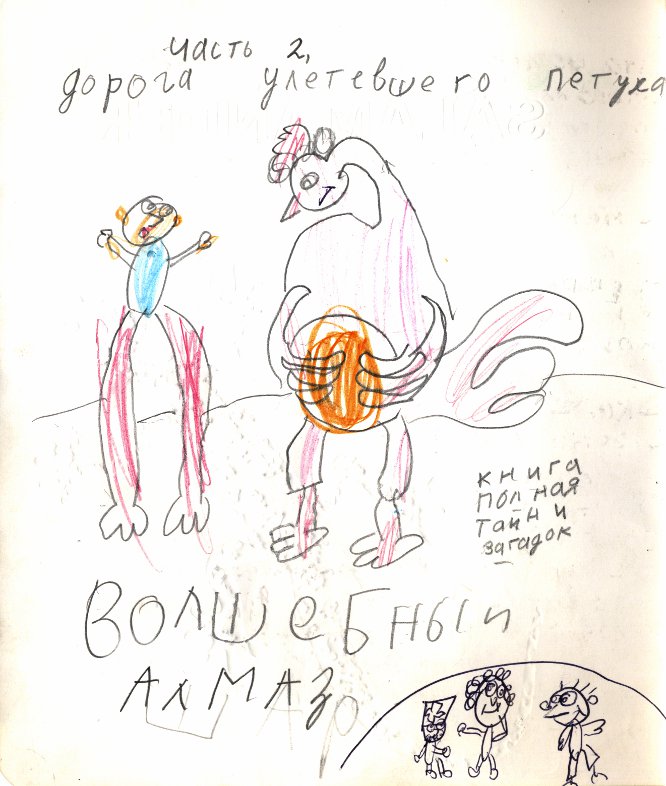 часть 2,
дорога улетевшего петуха
книга
полная
тайн и
загадок
ВОЛШеБНыи
АлМАЗ